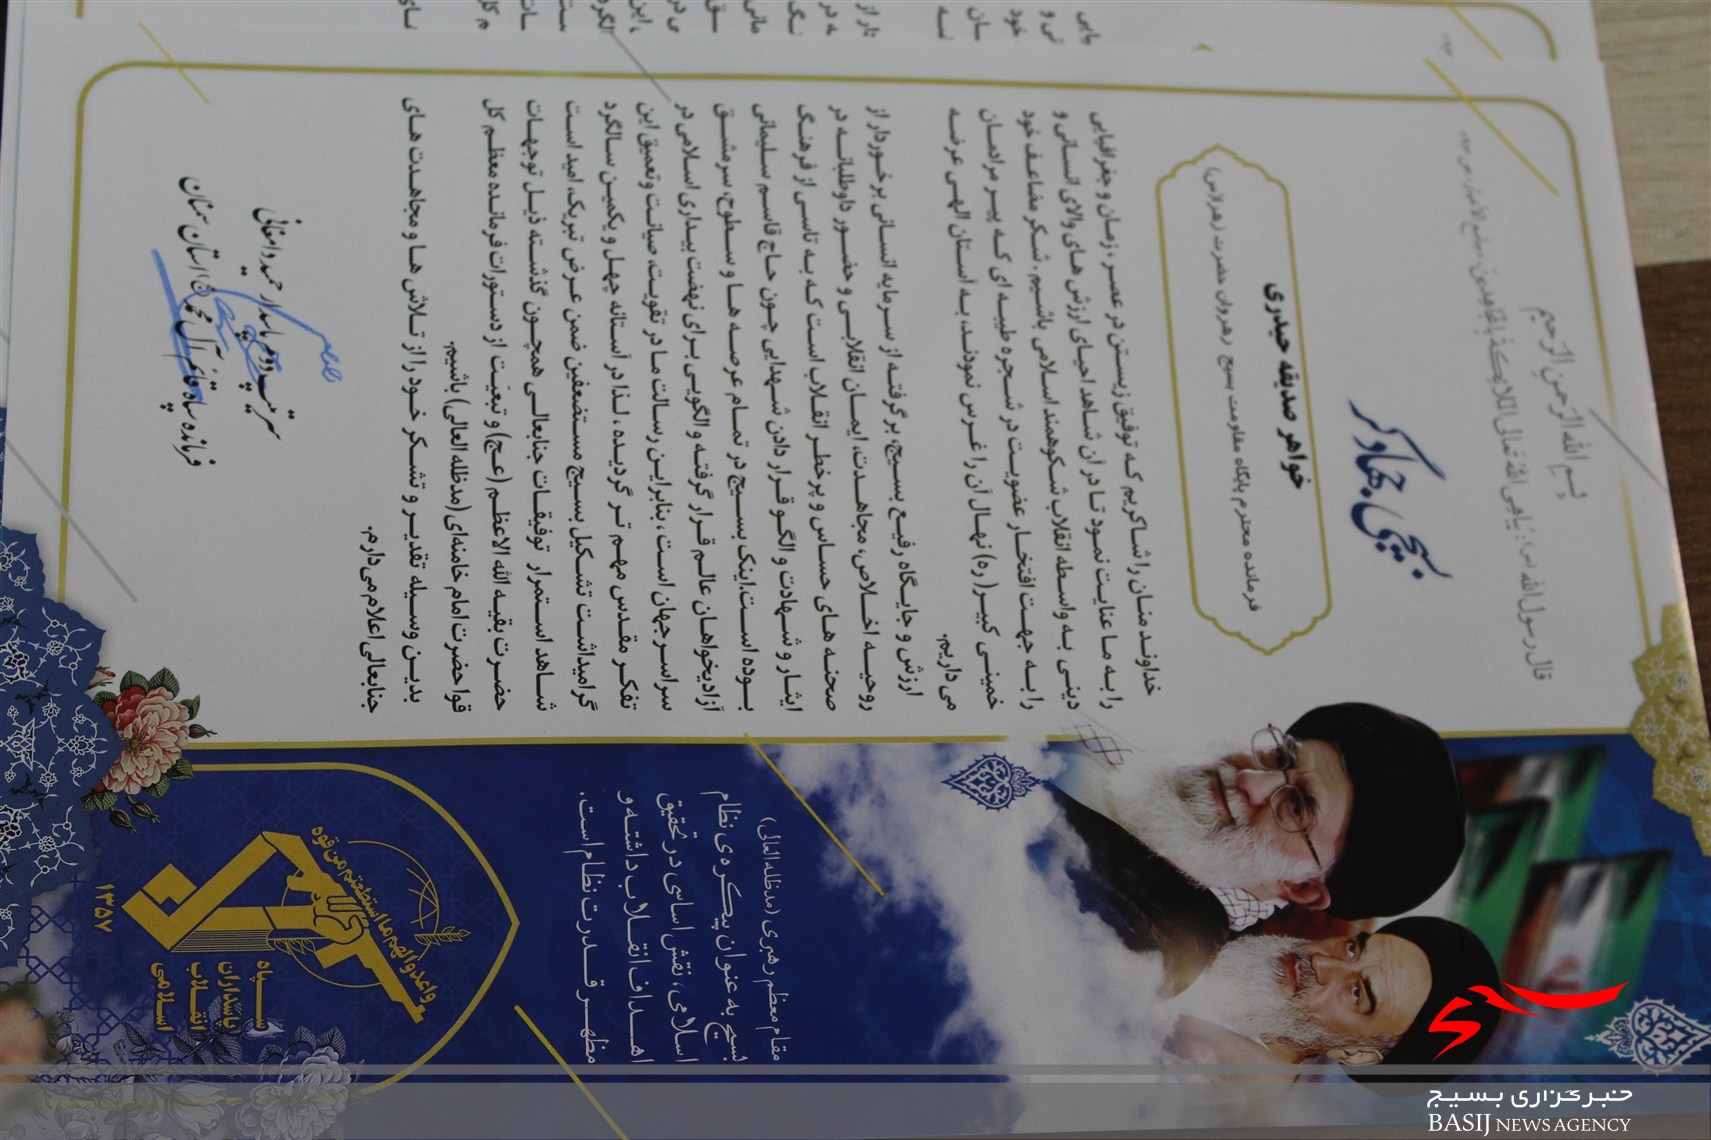 بسم الله الرحمن الرحیم
قال رسول الله (ص): یباهی الله تعالی الملائکة بالمجاهدین
بسیجی جهادگر
خواهر صدیقه حیدری
فرمانده محترم پایگاه مقاومت بسیج رهروان حضرت زهرا(س)
خداوند منان را شاکریم که توفیق زیستن در عصر، زمان و جغرافیایی
را به ما عنایت نمود تا در آن شاهد احیای ارزش های والای انسانی و
دینی به واسطه انقلاب شکوهمند اسلامی باشیم، شکر مضاعف خود
را به جهت افتخار عضویت در شجره طیبه ای که پیر مرادمان
خمینی کبیر(ره) نهال آن را غرس نمودند، به آستان الهی عرضه
می داریم.
ارزش و جایگاه رفیع بسیج، برگرفته از سرمایه انسانی برخوردار از
روحیه اخلاص، مجاهدت، ایمان انقلابی و حضور داوطلبانه در
صحنه های حساس و پرخطر انقلاب است که به تاسی از فرهنگ
ایثار و شهادت و الگو قرار دادن شهدایی چون حاج قاسم سلیمانی
بوده است، اینک بسیج در تمام عرصه ها و سطوح، سرمشق
آزادیخواهان عالم قرار گرفته و الگویی برای نهضت بیداری اسلامی در
سراسر جهان است، بنابراین رسالت ما در تقویت، صیانت و تعمیق این
تفکر مقدس مهم تر گردیده، لذا در آستانه چهل و یکمین سالگرد
گرامیداشت تشکیل بسیج مستضعفین ضمن عرض تبریک، امید است
شاهد استمرار توفیقات جنابعالی همچون گذشته ذیل توجهات
حضرت بقیه الله الاعظم (عج) و تبعیت از دستورات فرمانده معظم کل
قوا حضرت امام خامنه‌ای (مدظله العالی) باشیم.
بدین وسیله تقدیر و تشکر خود را از تلاش ها و مجاهدت های
جنابعالی اعلام می دارم.
سرتیپ دوم پاسدار حمید دامغانی
فرمانده سپاه قائم آل محمد(عج) استان سمنان
مقام معظم رهبری (مدظله العالی)
بسیج به عنوان پیکره ی نظام
اسلامی، نقش اساسی در تحقیق
اهداف انقلاب داشته و
مظهر قدرت نظام است.
واعدوا لهم ما استطعتم من قوة
سپاه
پاسداران
انقلاب
اسلامی
۱۳۵۷
بسیج
خبرگزاری بسیج
BASIJ NEWS AGENCY